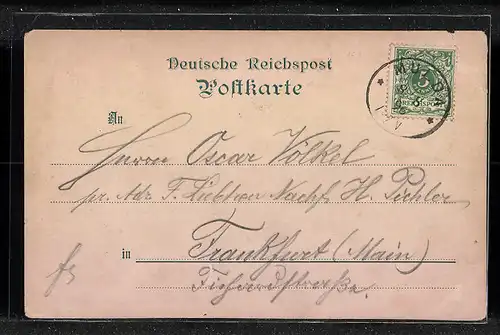 Deutsche Reichspost
Postkarte
An
Herrn Oscar Völkel
pr. Adr. F. Liebtreu Nachf. H. Pichler
in Frankfurt (Main)
Fichardstraße.